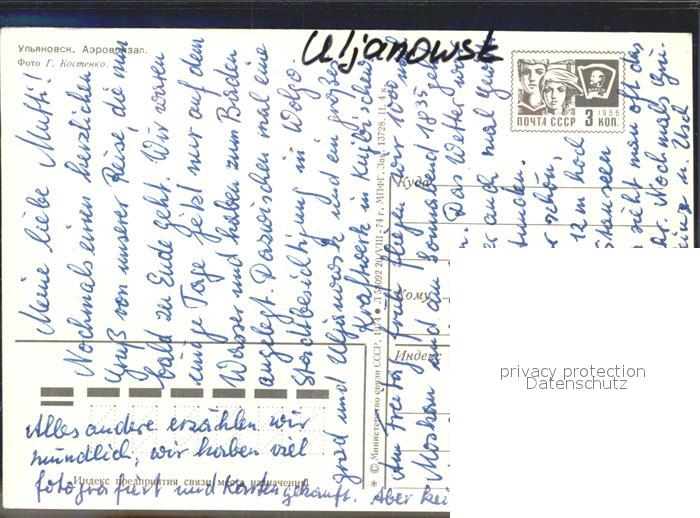 Ульяновск. Аэровокзал.
Фото Г. Костенко.
Uljanowsk
1966
ПОЧТА СССР 3 КОП.
Meine liebe Mutti!
Nochmals einen herzlichen
Gruß von unserer Reise, die nun
bald zu Ende geht. Wir waren
einige Tage jetzt nur auf dem
Wasser und haben zum Baden
angelegt. Dazwischen mal eine
Stadtbesichtigung in Wolgo-
grad und Uljanowsk und ein großes
Kraftwerk in Kujbischew
Am Freitag früh fliegen wir 1000 nach
Moskau und am Sonnabend 18 35
Das Wetter war
auch mal
Stunden.
schön,
12 m hoch
sieht man oft das
Nochmals
und
Alles andere erzählen wir
mündlich, wir haben viel
fotografiert und Karten gekauft. Aber
Куда
Кому
Индекс
Индекс предприятия связи места назначения
* © Министерство связи СССР, 1974 • Л 53092 20/VIII-74 г. МПФГ. Зак. 13728. Ц. 4 к.
privacy protection
Datenschutz